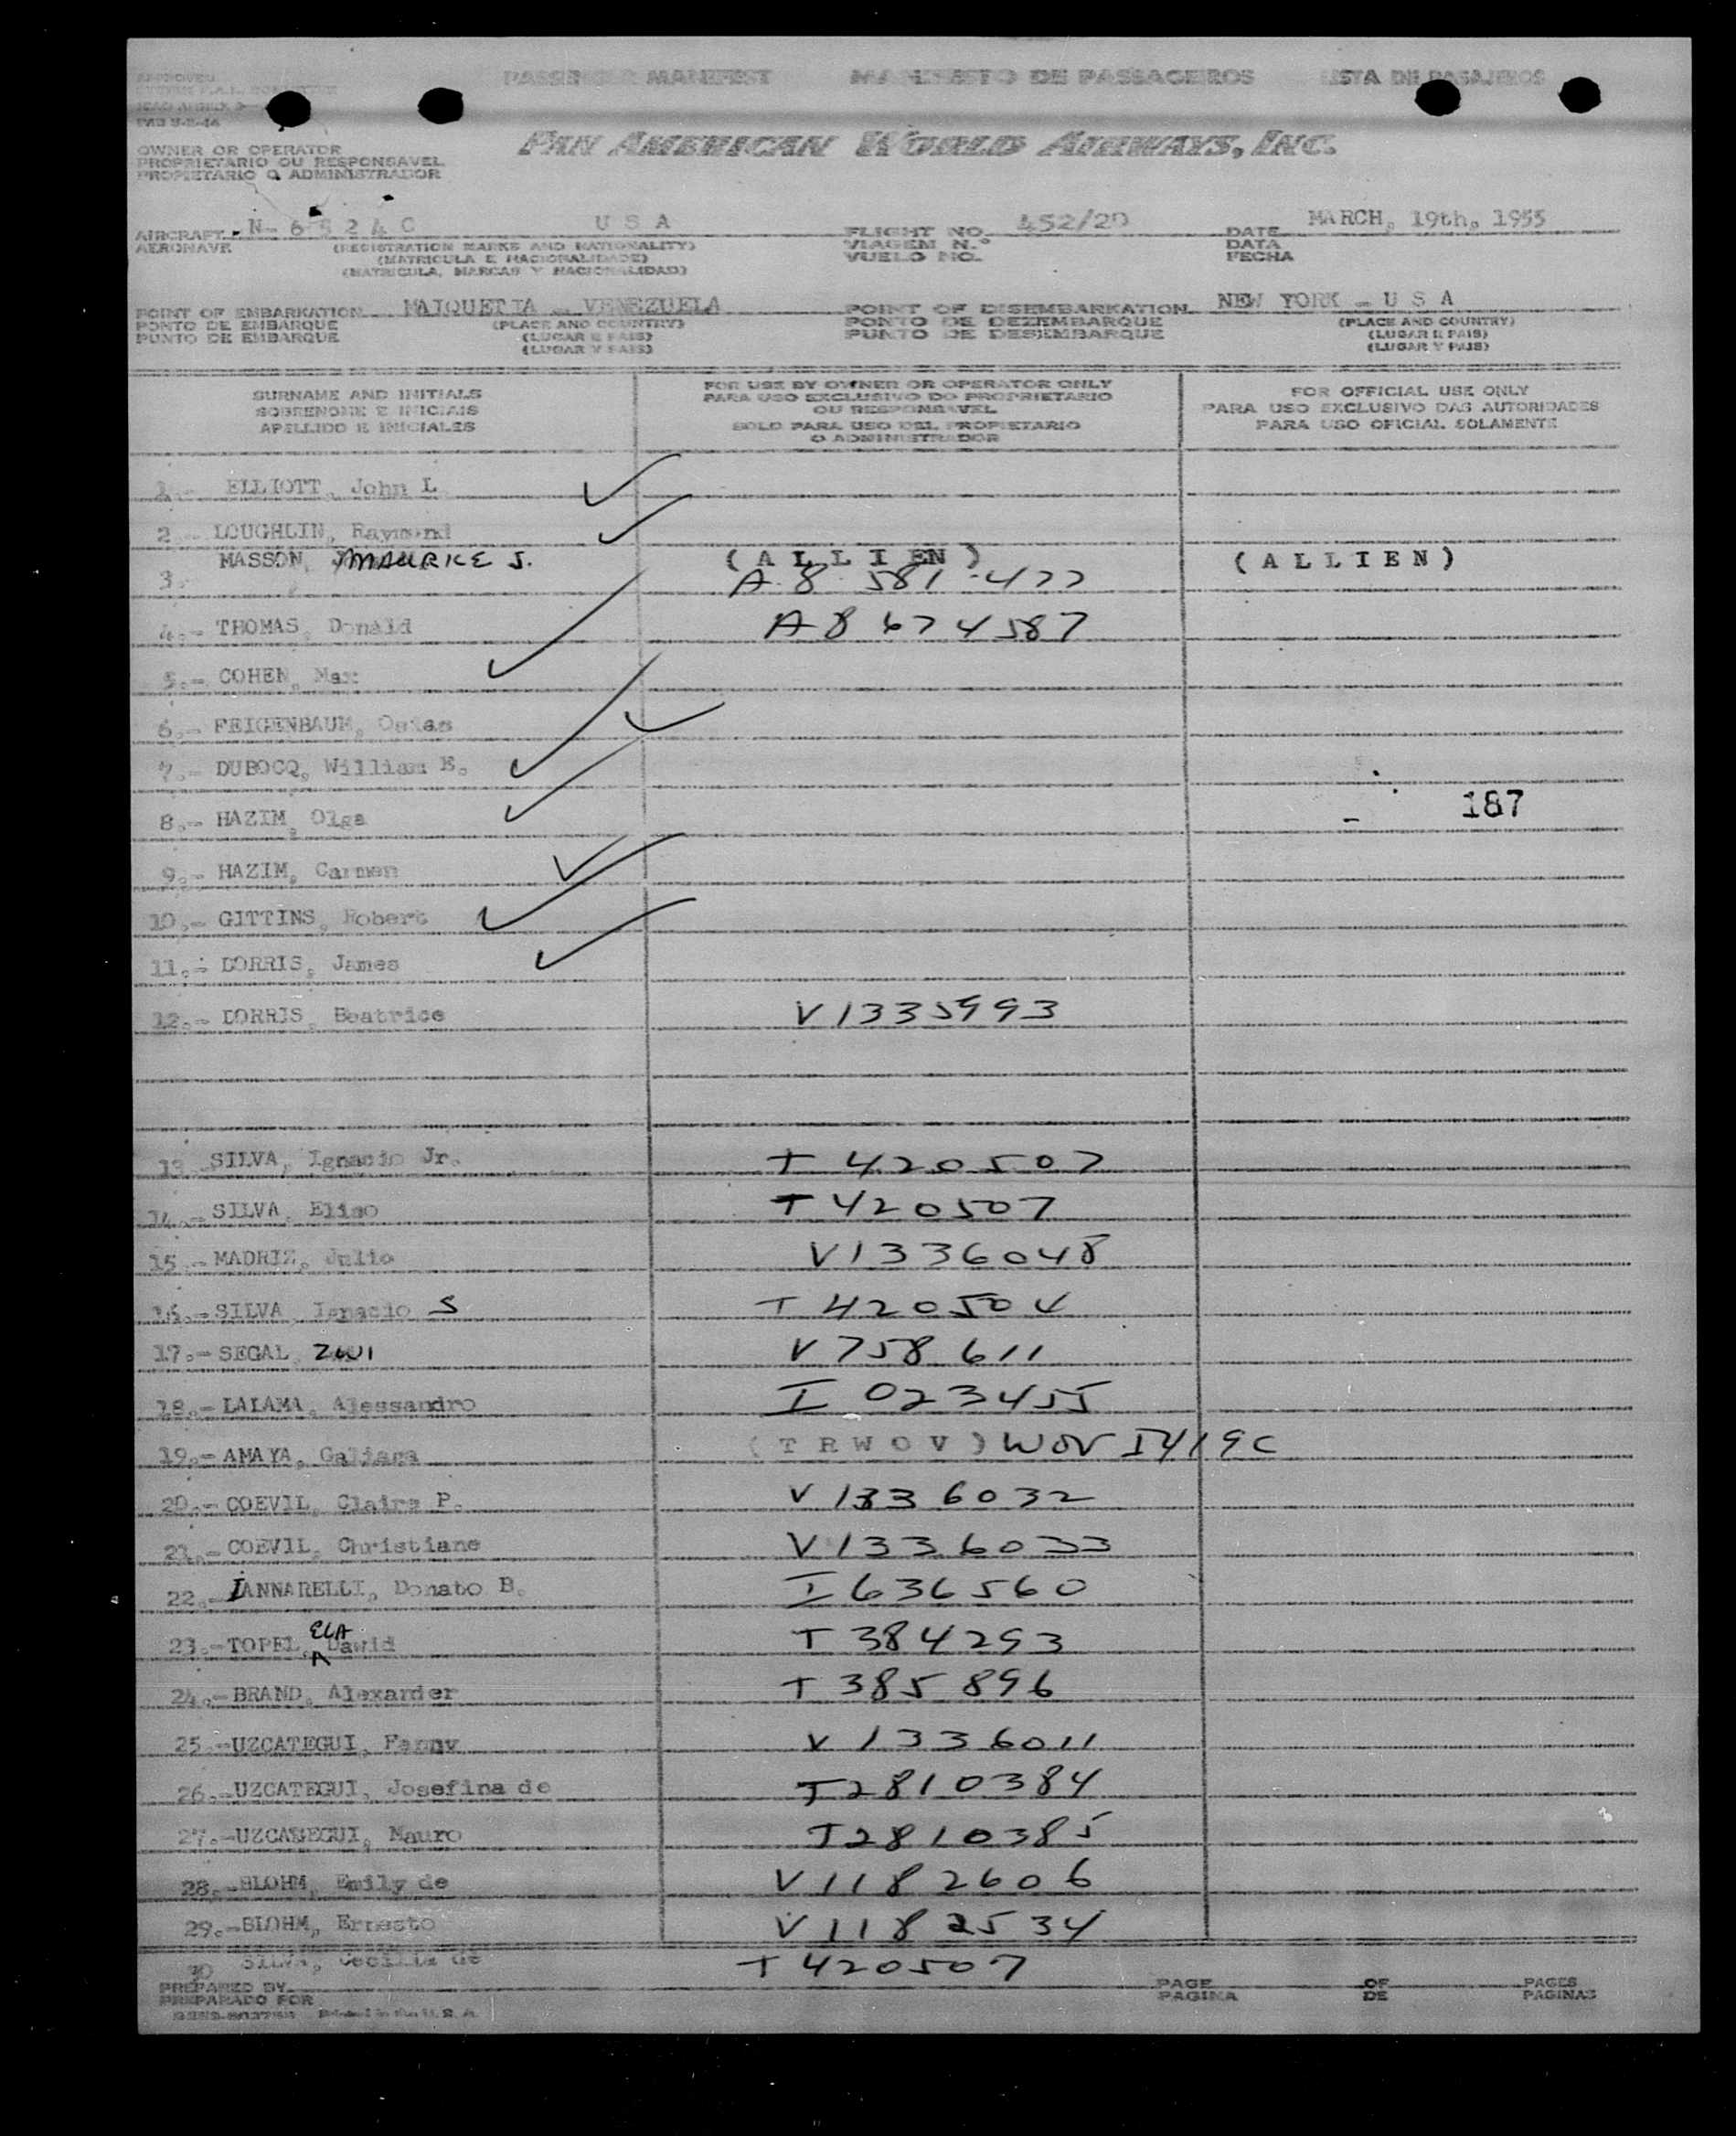 APPROVED
PASSENGER MANIFEST MANIFESTO DE PASSAGEIROS LISTA DE PASAJEROS
OWNER OR OPERATOR
PROPRIETARIO OU RESPONSAVEL
PROPIETARIO O ADMINISTRADOR
PAN AMERICAN WORLD AIRWAYS, INC.
AIRCRAFT U S A FLIGHT NO. 452/20 DATE MARCH, 19th, 1955
AERONAVE (REGISTRATION MARKS AND NATIONALITY) VIAGEM N.º DATA
(MATRICULA E NACIONALIDADE) VUELO NO. FECHA
(MATRICULA, MARCAS Y NACIONALIDAD)
POINT OF EMBARKATION MAIQUETIA - VENEZUELA POINT OF DISEMBARKATION NEW YORK - U S A
PONTO DE EMBARQUE (PLACE AND COUNTRY) PONTO DE DEZEMBARQUE (PLACE AND COUNTRY)
PUNTO DE EMBARQUE (LUGAR E PAIS) PUNTO DE DESEMBARQUE (LUGAR E PAIS)
(LUGAR Y PAIS) (LUGAR Y PAIS)
SURNAME AND INITIALS FOR USE BY OWNER OR OPERATOR ONLY FOR OFFICIAL USE ONLY
SOBRENOME E INICIAIS PARA USO EXCLUSIVO DO PROPRIETARIO PARA USO EXCLUSIVO DAS AUTORIDADES
OU RESPONSAVEL
APELLIDO E INICIALES SOLO PARA USO DEL PROPIETARIO PARA USO OFICIAL SOLAMENTE
O ADMINISTRADOR
1.- ELLIOTT, John L
2.- LOUGHLIN, Raymond
MASSON, MAURICE J. (A L L I EN) (A L L I E N)
3.- A 8 581 422
4.- THOMAS, Donald A8 674587
5.- COHEN, Max
6.- FEIGENBAUM, Osias
7.- DUBOCQ, William E.
8.- HAZIM, Olga - 187
9.- HAZIM, Carmen
10.- GITTINS, Robert
11.- DORRIS, James
12.- DORRIS, Beatrice V1335993
13.- SILVA, Ignacio Jr. T 420507
14.- SILVA, Eliso T420507
15.- MADRIZ, Julio V1336048
16.- SILVA Ignacio S T 420504
17.- SEGAL, ZWI V758 611
18.- LALAMA, Alessandro I 023455
19.- AMAYA, (T R W O V) WOV I419C
20.- COEVIL, Claire P. V 1336032
21.- COEVIL, Christiane V1336033
22.- IANNARELLI, Donato B. I636560
ELA
23.- TOPEL, Dawid T 384293
24.- BRAND, Alexander T 385896
25.- UZCATEGUI, Fanny V 1336011
26.- UZCATEGUI, Josefina de T2810384
27.- UZCATEGUI, Mauro T2810385
28.- BLOHM, Emily de V1182606
29.- BLOHM, Ernesto V1182534
30 SILVA, Cecilia de T 420507
PREPARED BY PAGE OF PAGES
PREPARADO POR PAGINA DE PAGINAS
Printed in U.S.A.